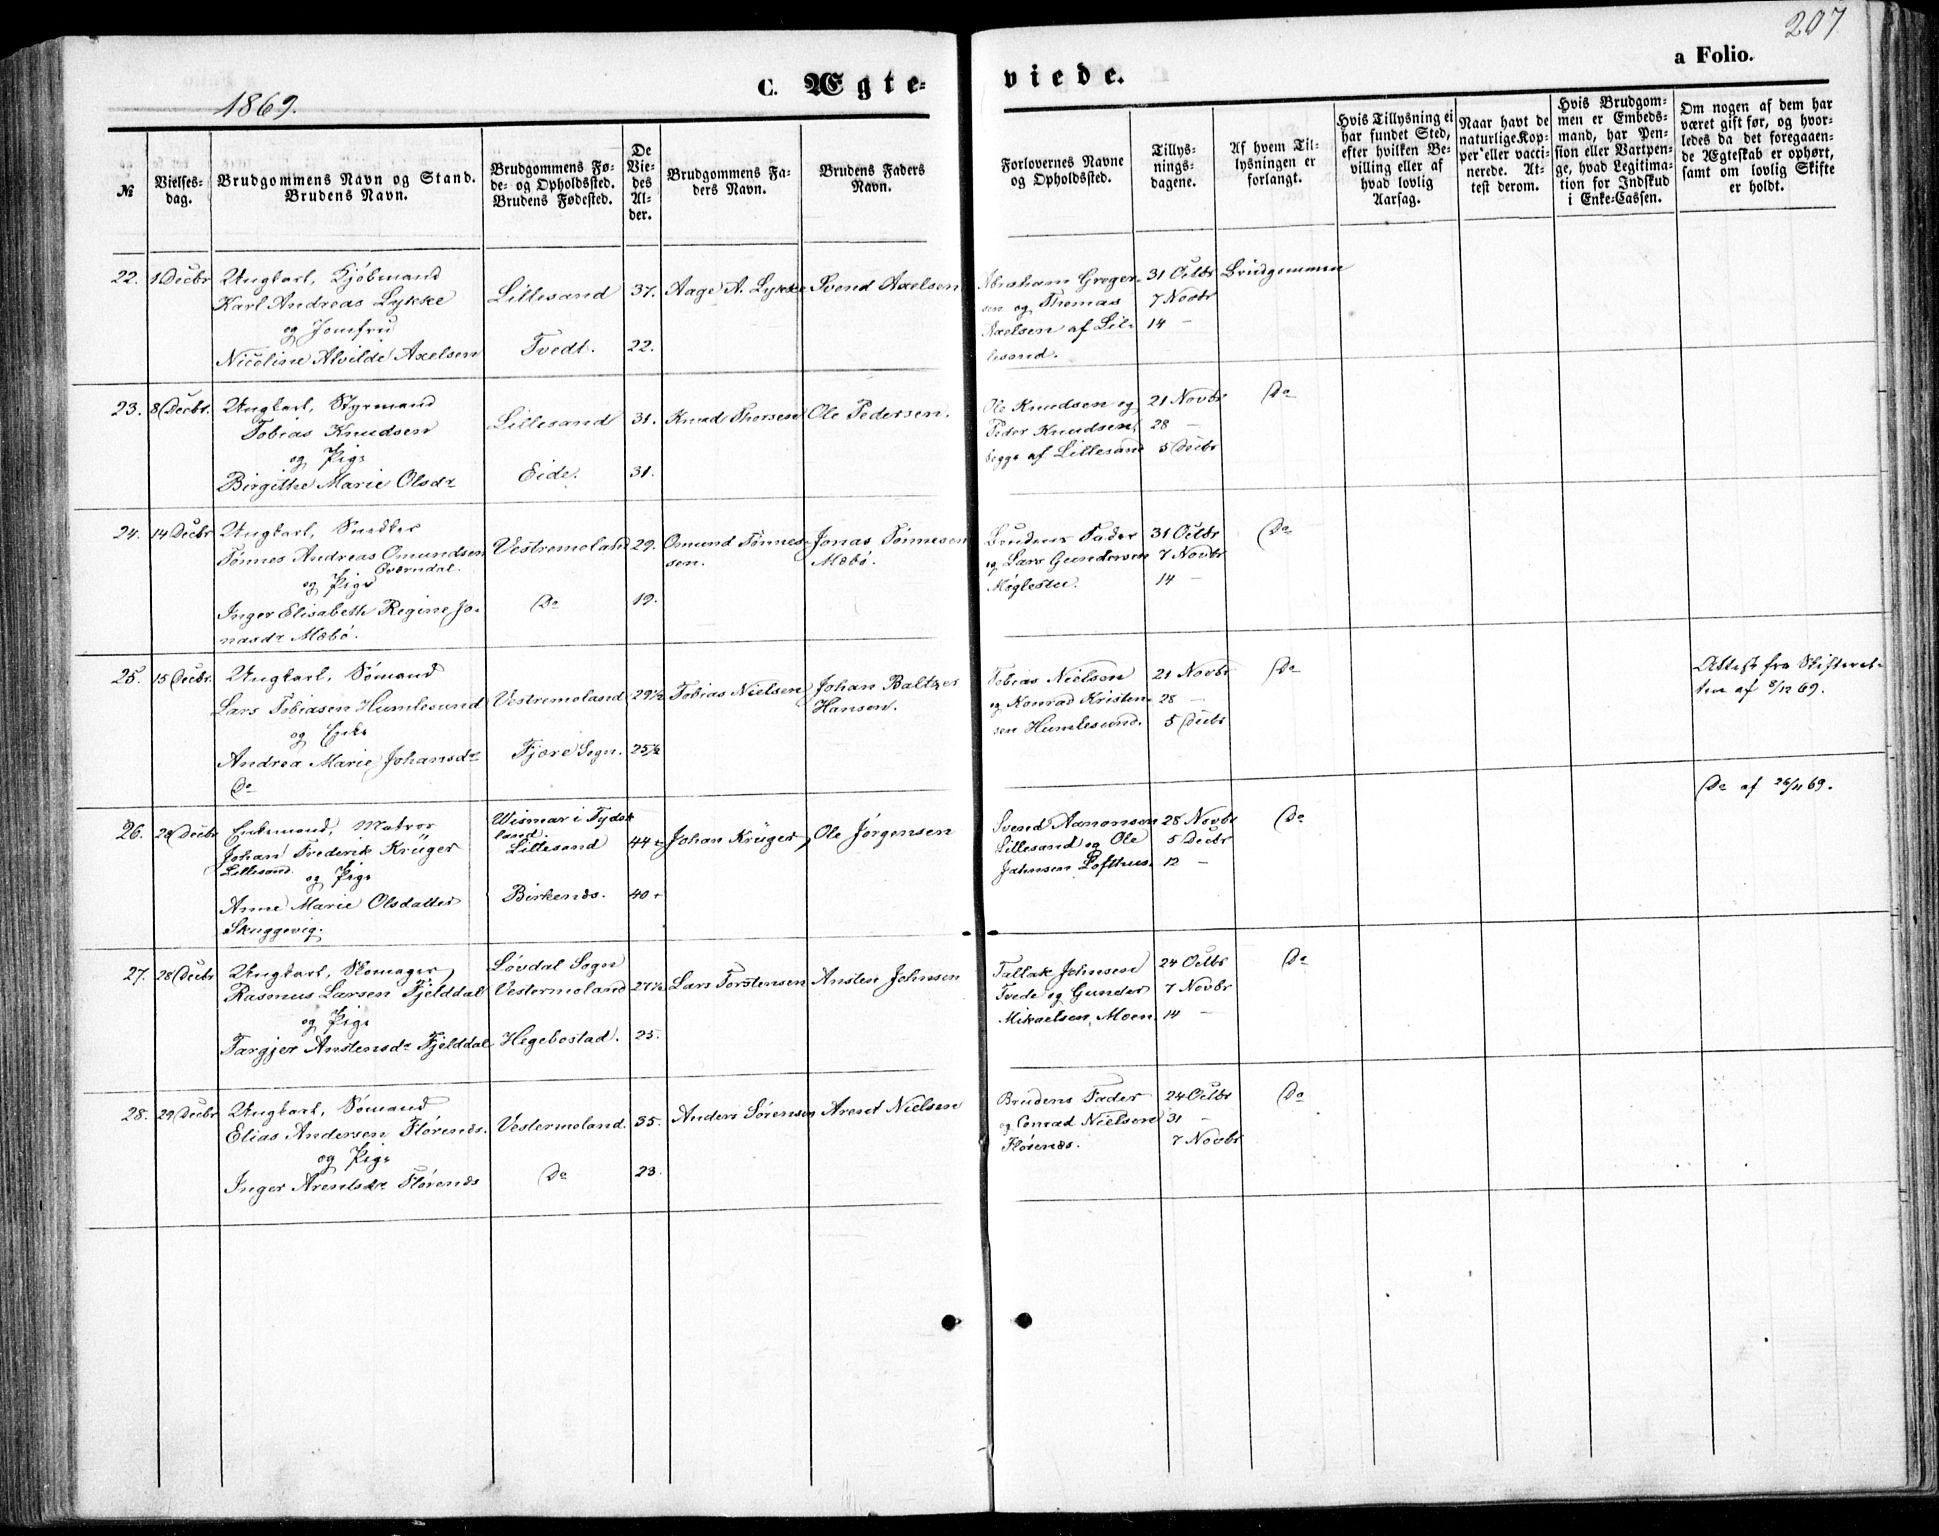 207
a Folio.
1869.
C. Ægte-
viede.
№
Vielses-
dag.
Brudgommens Navn og Stand.
Brudens Navn.
Brudgommens Fø-
de- og Opholdssted.
Brudens Fødested.
De
Vie-
des
Al-
der.
Brudgommens Fa-
ders Navn.
Brudens Faders
Navn.
Forlovernes Navne
og Opholdssted.
Tillys-
nings-
dagene.
Af hvem Til-
lysningen er
forlangt.
Hvis Tillysning ei
har fundet Sted,
efter hvilken Be-
villing eller af
hvad lovlig
Aarsag.
Naar havt de
naturlige Kop-
per eller vacci-
nerede. At-
test derom.
Hvis Brudgom-
men er Embeds-
mand, har Pen-
sion eller Vartpen-
ge, hvad Legitima-
tion for Indskud
i Enke-Cassen.
Om nogen af dem har
været gift før, og hvor-
ledes da det foregaaen-
de Ægteskab er ophørt,
samt om lovlig Skifte
er holdt.
22. 1 Decbr Ungkarl, Kjøbmand
Karl Andreas Lykke
og Jomfru
Nicoline Alvilde Axelsen
Lillesand
Tvedt.
37.
22.
Aage A. Lykke
Svend Axelsen
Abraham Greger-
sen og Thomas
Axelsen af Lil-
lesand.
31 Octbr
7 Novbr
14 -
Brudgommen
23. 8 Decbr. Ungkarl, Styrmand
Tobias Knudsen
og Pige
Birgithe Marie Olsdr
Lillesand
Eide.
31.
31.
Knud Thorsen
Ole Pedersen.
Ole Knudsen og
Peder Knudsen,
begge af Lillesand
21 Novbr
28 -
5 Decbr
Do
24. 14 Decbr Ungkarl, Snedker
Tønnes Andreas Omundsen
Overndal.
og Pige
Inger Elisabeth Regine Jo-
nasdr Mæbø.
Vestremoland
Do
29.
19.
Omund Tønnes-
sen.
Jonas Tønnesen
Mæbø.
Brudens Fader
og Lars Gundersen
Møglestu.
31 Octbr
7 Novbr
14 -
Do
25. 15 Decbr. Ungkarl, Sømand
Lars Tobiasen Humlesund
og Enke
Andrea Marie Johansdr
Do
Vestremoland
Fjære Sogn.
29½
25½
Tobias Nielsen
Johan Baltzer
Hansen.
Tobias Nielsen
og Konrad Kristen-
sen Humlesund.
21 Novbr
28 -
5 Decbr
Do
Attest fra Skifteret-
ten af 8/12 69.
26. 28 Decbr Enkemand, Matros
Johan Frederik Krüger
Lillesand og Pige
Anne Marie Olsdatter
Skuggevig.
Wismar i Tydsk-
land.
Lillesand
Birkenes.
44
40
Johan Krüger,
Ole Jørgensen
Svend Aanonsen
Lillesand og Ole
Jahnsen Lofthus.
28 Novbr
5 Decbr
12 -
Do
Do af 26/11 69.
27. 28 Decbr Ungkarl, Skomager
Rasmus Larsen Fjelddal
og Pige
Targjer Anstensdr Fjelddal
Løvdal Sogn
Vestermoland
Hegebostad.
27½
25.
Lars Torstensen
Ansten Johnsen
Tallak Johnsen
Tvede og Gunder
Mikaelsen, Moen.
24 Octbr
7 Novbr
14 -
Do
28. 29 Decbr Ungkarl, Sømand
Elias Andersen Flørenæs.
og Pige
Inger Arentsdr Flørenæs
Vestermoland.
Do
35.
23.
Anders Sørensen
Arent Nielsen
Brudens Fader
og Conrad Nielsen
Flørenæs.
24 Octbr
31 -
7 Novbr
Do